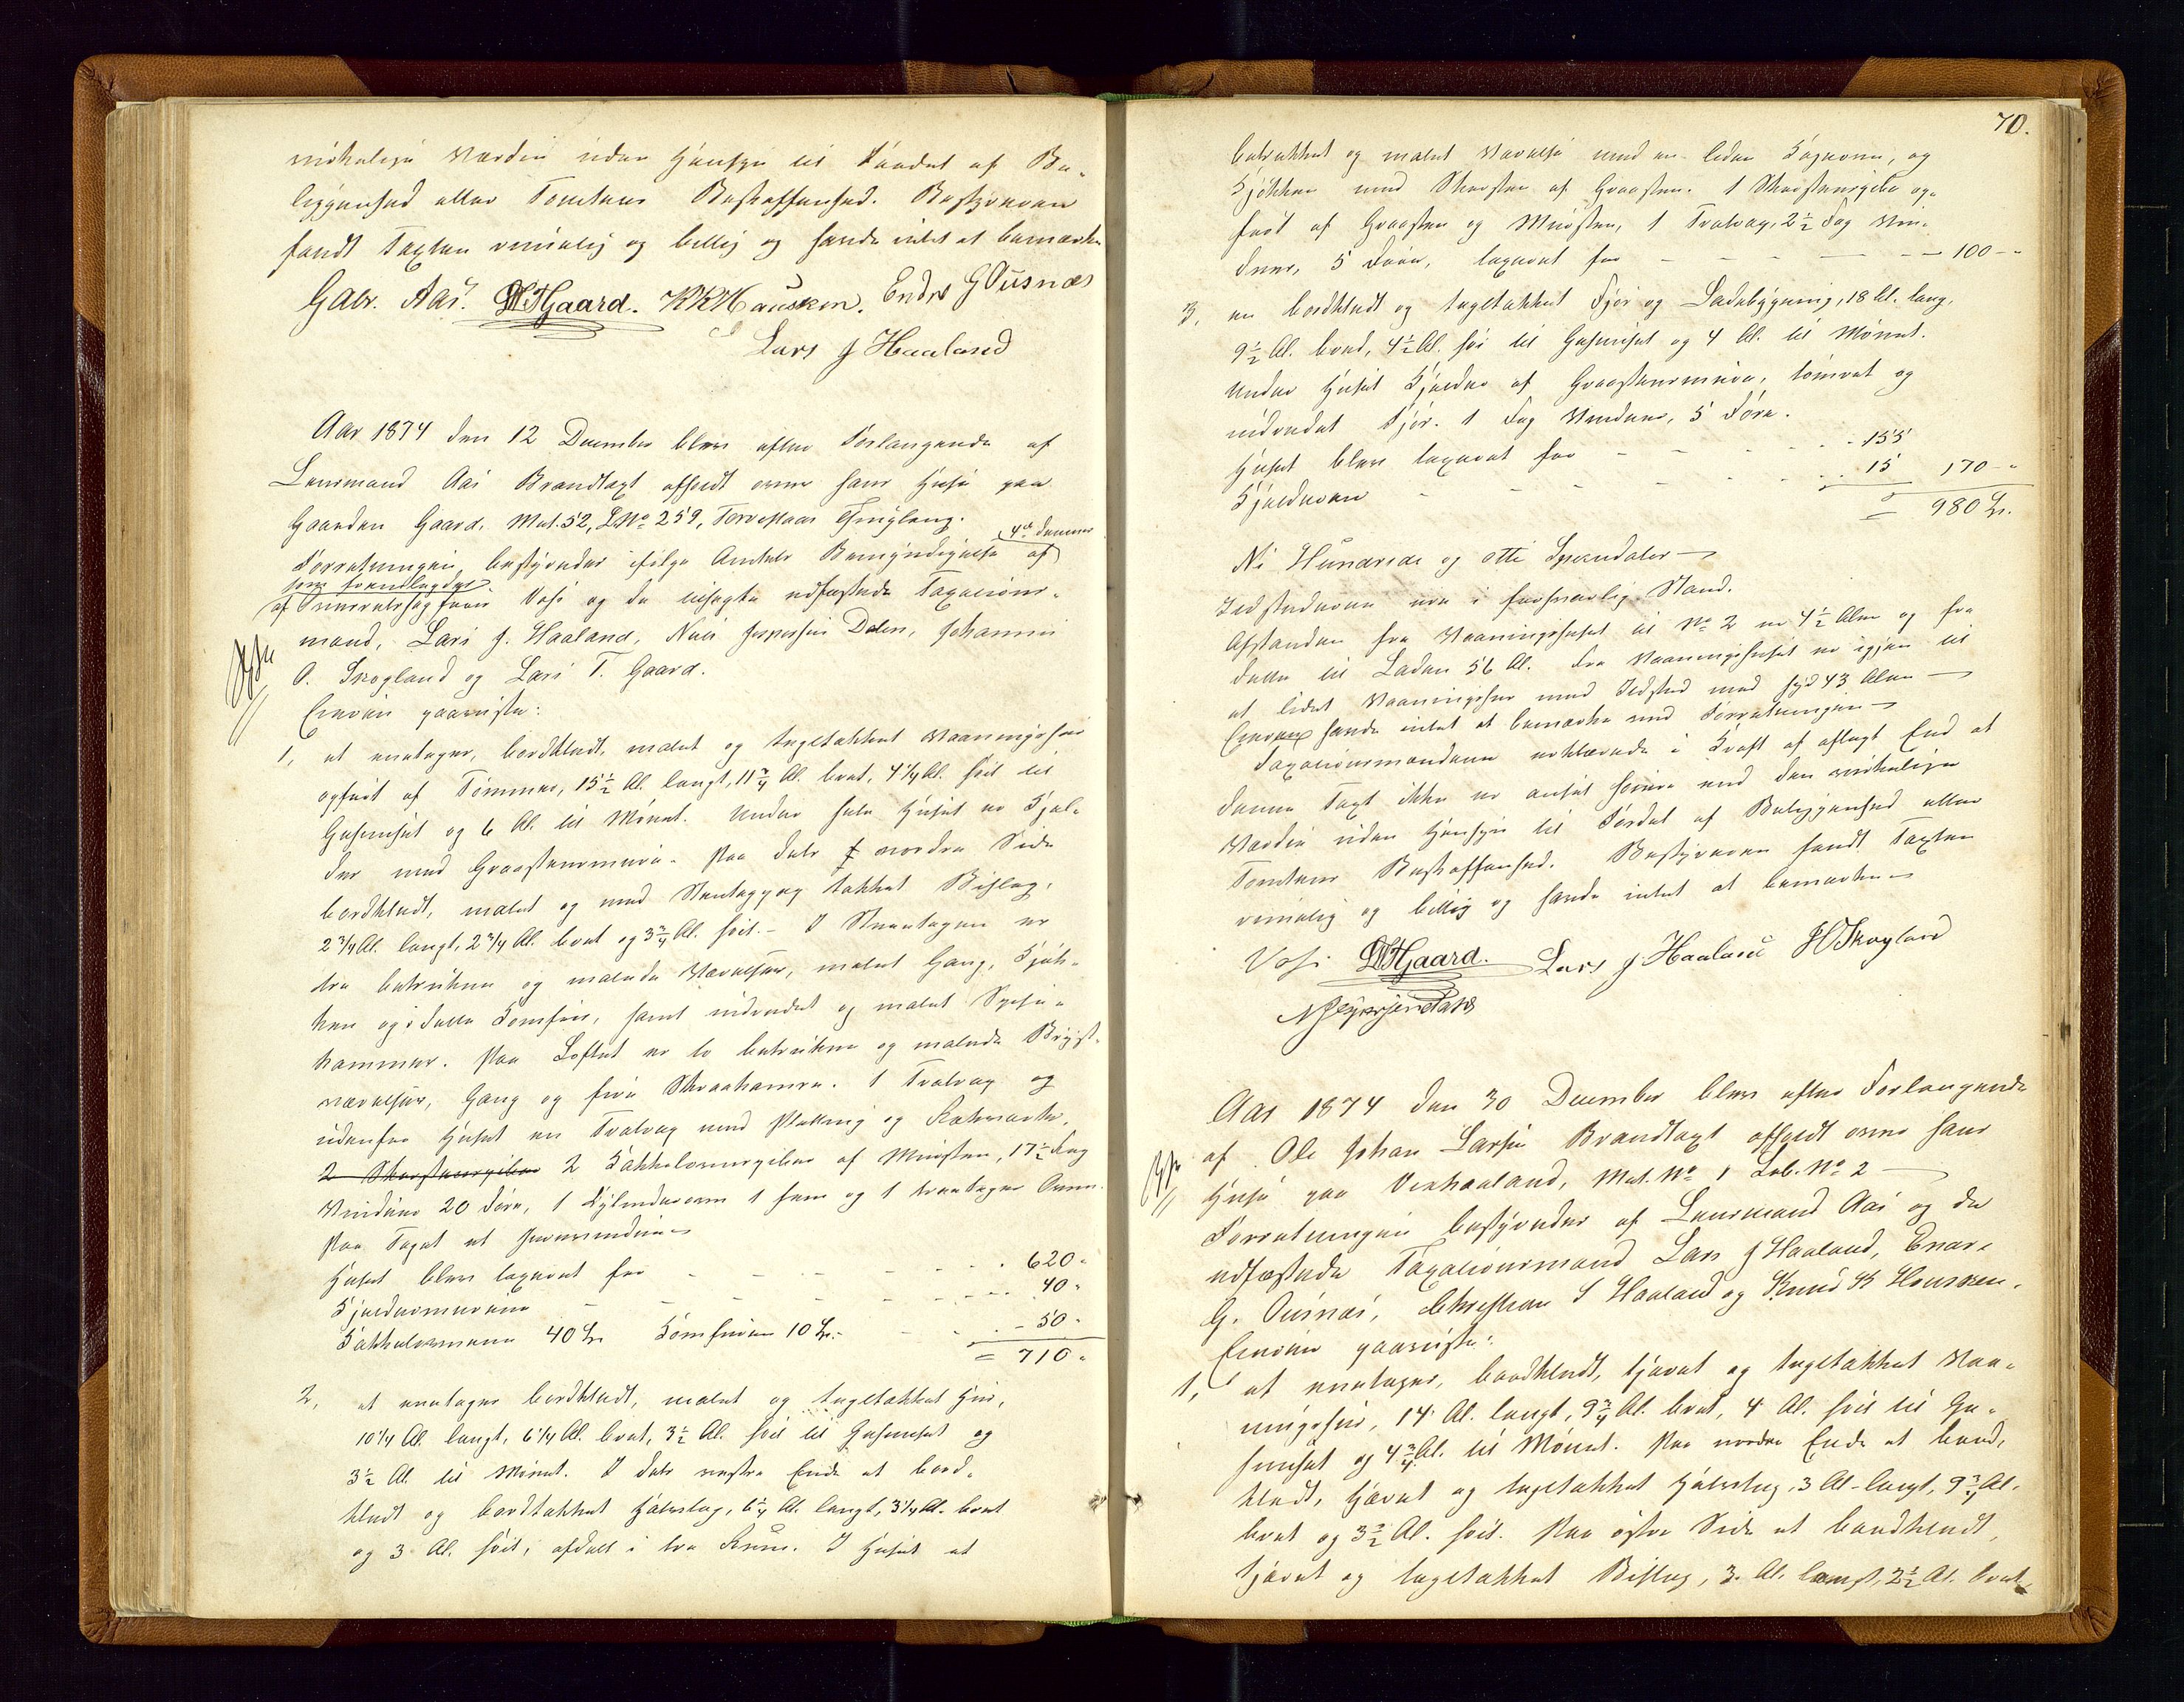 virkelige Værdie uden Hensyn til Stædet af Be-
liggenhed eller Tomtens Beskaffenhed. Bestyreren
fandt Taxten rimelig og billig og havde intet at bemærke
Gabr. Aas. Gaard. KKHausken. Endre G Ousnæs
Lars J Haaland
Aar 1874 den 12 December blev efter Forlangende af
Lensmand Aas Brandtaxt afholdt over hans Huse paa
Gaarden Gaard. Mat. 52, LNo 259, Torvestads Thinglaug.
Forretningen bestyredes ifølge Amtets Bemyndigelse af
4de dennes
som fremlagdes
af Overretssagfører Vohs og de tilsagte edfæstede Taxations-
mænd, Lars J. Haaland, Nils Jespersen Dalen, Johannes
O. Skogland og Lars T. Gaard.
Eieren paaviste:
1, et eenetages, bordklædt, malet og tegltækket Vaaningshuus
opført af Tømmer, 15½ Al. langt, 11¾ Al. bret, 4¼ Al. høit til
Gesimset og 6 Al. til Mønet. Under hele Huset er Kjel-
der med Graasteensmure. Paa dets nordre Side
bordklædt, malet og med Steentag tækket Bislag,
2¾ Al. langt, 2¾ Al. bret og 3¾ Al. høit. – I Stueetagen er
tre betrukne og malede Værelser, malet Gang, Kjøk-
ken og i dette Komfur, samt indredet og malet Spise-
kammer. Paa Loftet er to betrukne og malede Kvist-
værelser, Gang og fire Skraakamre. 1 Trætrap og
udenfor Huset en Trætrap med Platting og Rækverk.
2 Skorsteenspiber 2 Kakkelovnspiber af Muursten, 17½ Fag
Vinduer 20 Døre, 1 Cylinderovn 1 fem og 1 treetages Ovn.
Paa Taget et Jernvindue
Huset blev taxeret for - - - 620 "
Kjeldermurene - - - 40 "
Kakkelovnene 40 Sp. Komfuren 10 Sp. - - 50 "
= 710 "
2, et eenetages bordklædt, malet og tegltækket Huus,
10¼ Al. langt, 6¼ Al. bret, 3½ Al. høit til Gesimset og
3½ Al. til Mønet. I dets vestre Ende et bord-
klædt og bordtækket Halvtag, 6¼ Al. langt, 3¼ Al. bret
og 3 Al. høit, afdelt i tre Rum. I Huset et
70.
betrukket og malet Værelse med en liden Kogeovn, og
Kjøkken med Skorsten af Graasten. 1 Skorstenspibe op-
ført af Graasten og Mursten, 1 Trætrap, 2½ Fag Vin-
duer, 5 Døre, taxeret for - - - 100 - "
3, en bordklædt og tegltækket Fjøs og Ladebygning, 18 Al. lang,
9½ Al. bred, 4½ Al. høi til Gesimset og 4 Al. til Mønet.
Under Huset Kjelder af Graasteensmure, tømret og
indredet Fjøs. 1 Fag Vinduer, 5 Døre.
Huset blev taxeret for - - - 155
Kjelderen - - - 15 170 - "
= 980 Sp.
Ni Hundrede og otti Speciedaler –
Ildstederne ere i forsvarlig Stand.
Afstanden fra Vaaningshuset til No 2 er 4½ Alen og fra
dette til Laden 56 Al. Fra Vaaningshuset er igjen til
et lidet Vaaningshus med Ildsted mod Syd 43 Alen –
Eieren havde intet at bemærke med Forretningen –
Taxationsmændene erklærede i Kraft af aflagt Eed at
denne Taxt ikke er ansat høiere end den virkelige
Værdie uden Hensyn til Stædet af Beliggenhed eller
Tomtens Beskaffenhed. Bestyreren fandt Taxten
rimelig og billig og havde intet at bemærke –
Vohs. Gaard. Lars J Haaland J O Skogland
N Jespersen Dalen
Aar 1874 den 30 December blev efter Forlangende
af Ole Johan Larsen Brandtaxt afholdt over hans
Huse paa Vexhaaland, Mat. No 1 Løb. No 2 –
Forretningen bestyredes af Lensmand Aas og de
edfæstede Taxationsmænd Lars J Haaland, Endre
G. Ousnæs, Christian S Haaland og Knud K Hausken.
Eieren paaviste:
1, et eenetages, bordklædt, tjæret og tegltækket Vaa-
ningshus, 14 Al. langt, 9¾ Al. bret, 4 Al. høit til Ge-
simset og 4¾ Al. til Mønet. Paa nordre Ende et bord-
klædt, tjæret og tegltækket Halvtag, 3 Al. langt, 9¾ Al.
bret og 3½ Al. høit. Paa østre Side et bordklædt,
tjæret og tegltækket Bislag, 3 Al. langt, 2½ Al. bret